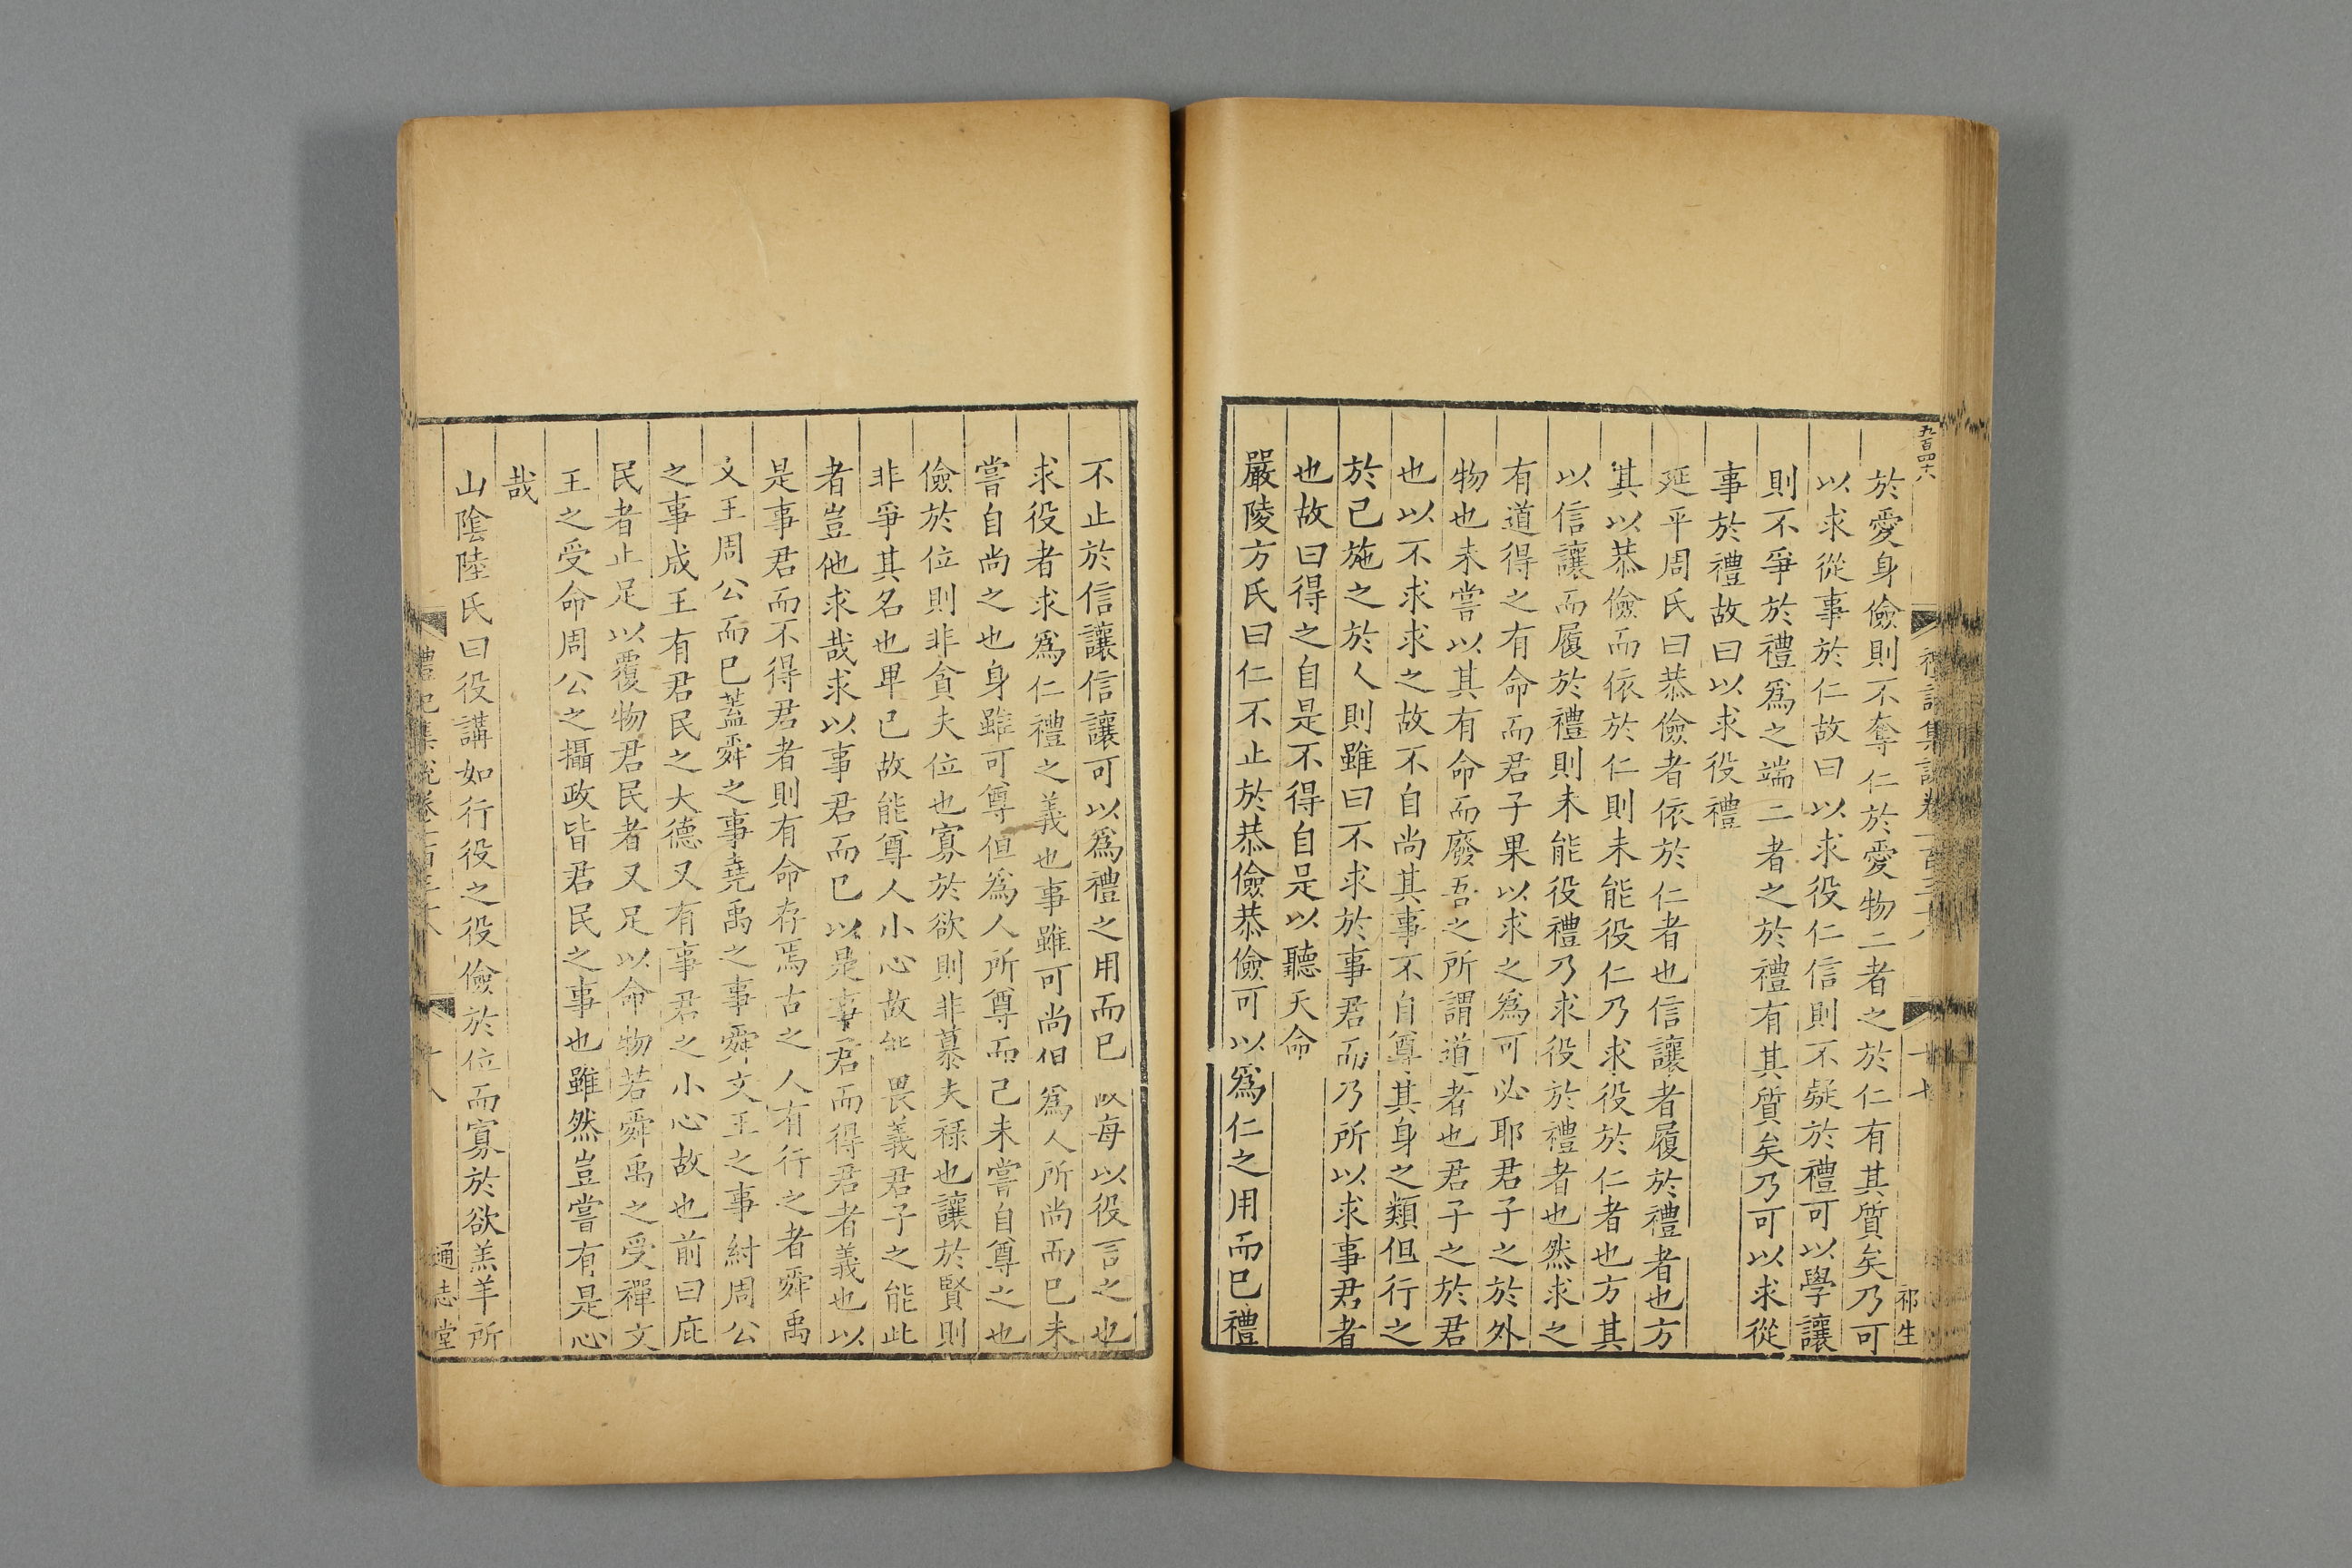 九百四十八
於愛身儉則不奪仁於愛物二者之於仁有其質矣乃可
以求從事於仁故曰以求役仁信則不疑於禮可以學讓
則不爭於禮爲之端二者之於禮有其質矣乃可以求從
事於禮故曰以求役禮
延平周氏曰恭儉者依於仁者也信讓者履於禮者也方
其以恭儉而依於仁則未能役仁乃求役於仁者也方其
以信讓而履於禮則未能役禮乃求役於禮者也然求之
有道得之有命而君子果以求之爲可必耶君子之於外
物也未嘗以其有命而廢吾之所謂道者也君子之於君
也以不求求之故不自尚其事不自尊其身之類但行之
於己施之於人則雖曰不求於事君而乃所以求事君者
也故曰得之自是不得自是以聽天命
嚴陵方氏曰仁不止於恭儉恭儉可以爲仁之用而已禮
祁生
不止於信讓信讓可以爲禮之用而已以每以役言之也
求役者求爲仁禮之義也事雖可尚但爲人所尚而已未
嘗自尚之也身雖可尊但爲人所尊而己未嘗自尊之也
儉於位則非貪夫位也寡於欲則非慕夫祿也讓於賢則
非爭其名也卑已故能尊人小心故能畏義君子之能此
者豈他求哉求以事君而已以是事君而得君者義也以
是事君而不得君者則有命存焉古之人有行之者舜禹
文王周公而已蓋舜之事堯禹之事舜文王之事紂周公
之事成王有君民之大德又有事君之小心故也前曰庇
民者止足以覆物君民者又足以命物若舜禹之受禪文
王之受命周公之攝政皆君民之事也雖然豈嘗有是心
哉
山陰陸氏曰役講如行役之役儉於位而寡於欲羔羊所
禮記集說卷一百三十八
十八
通志堂